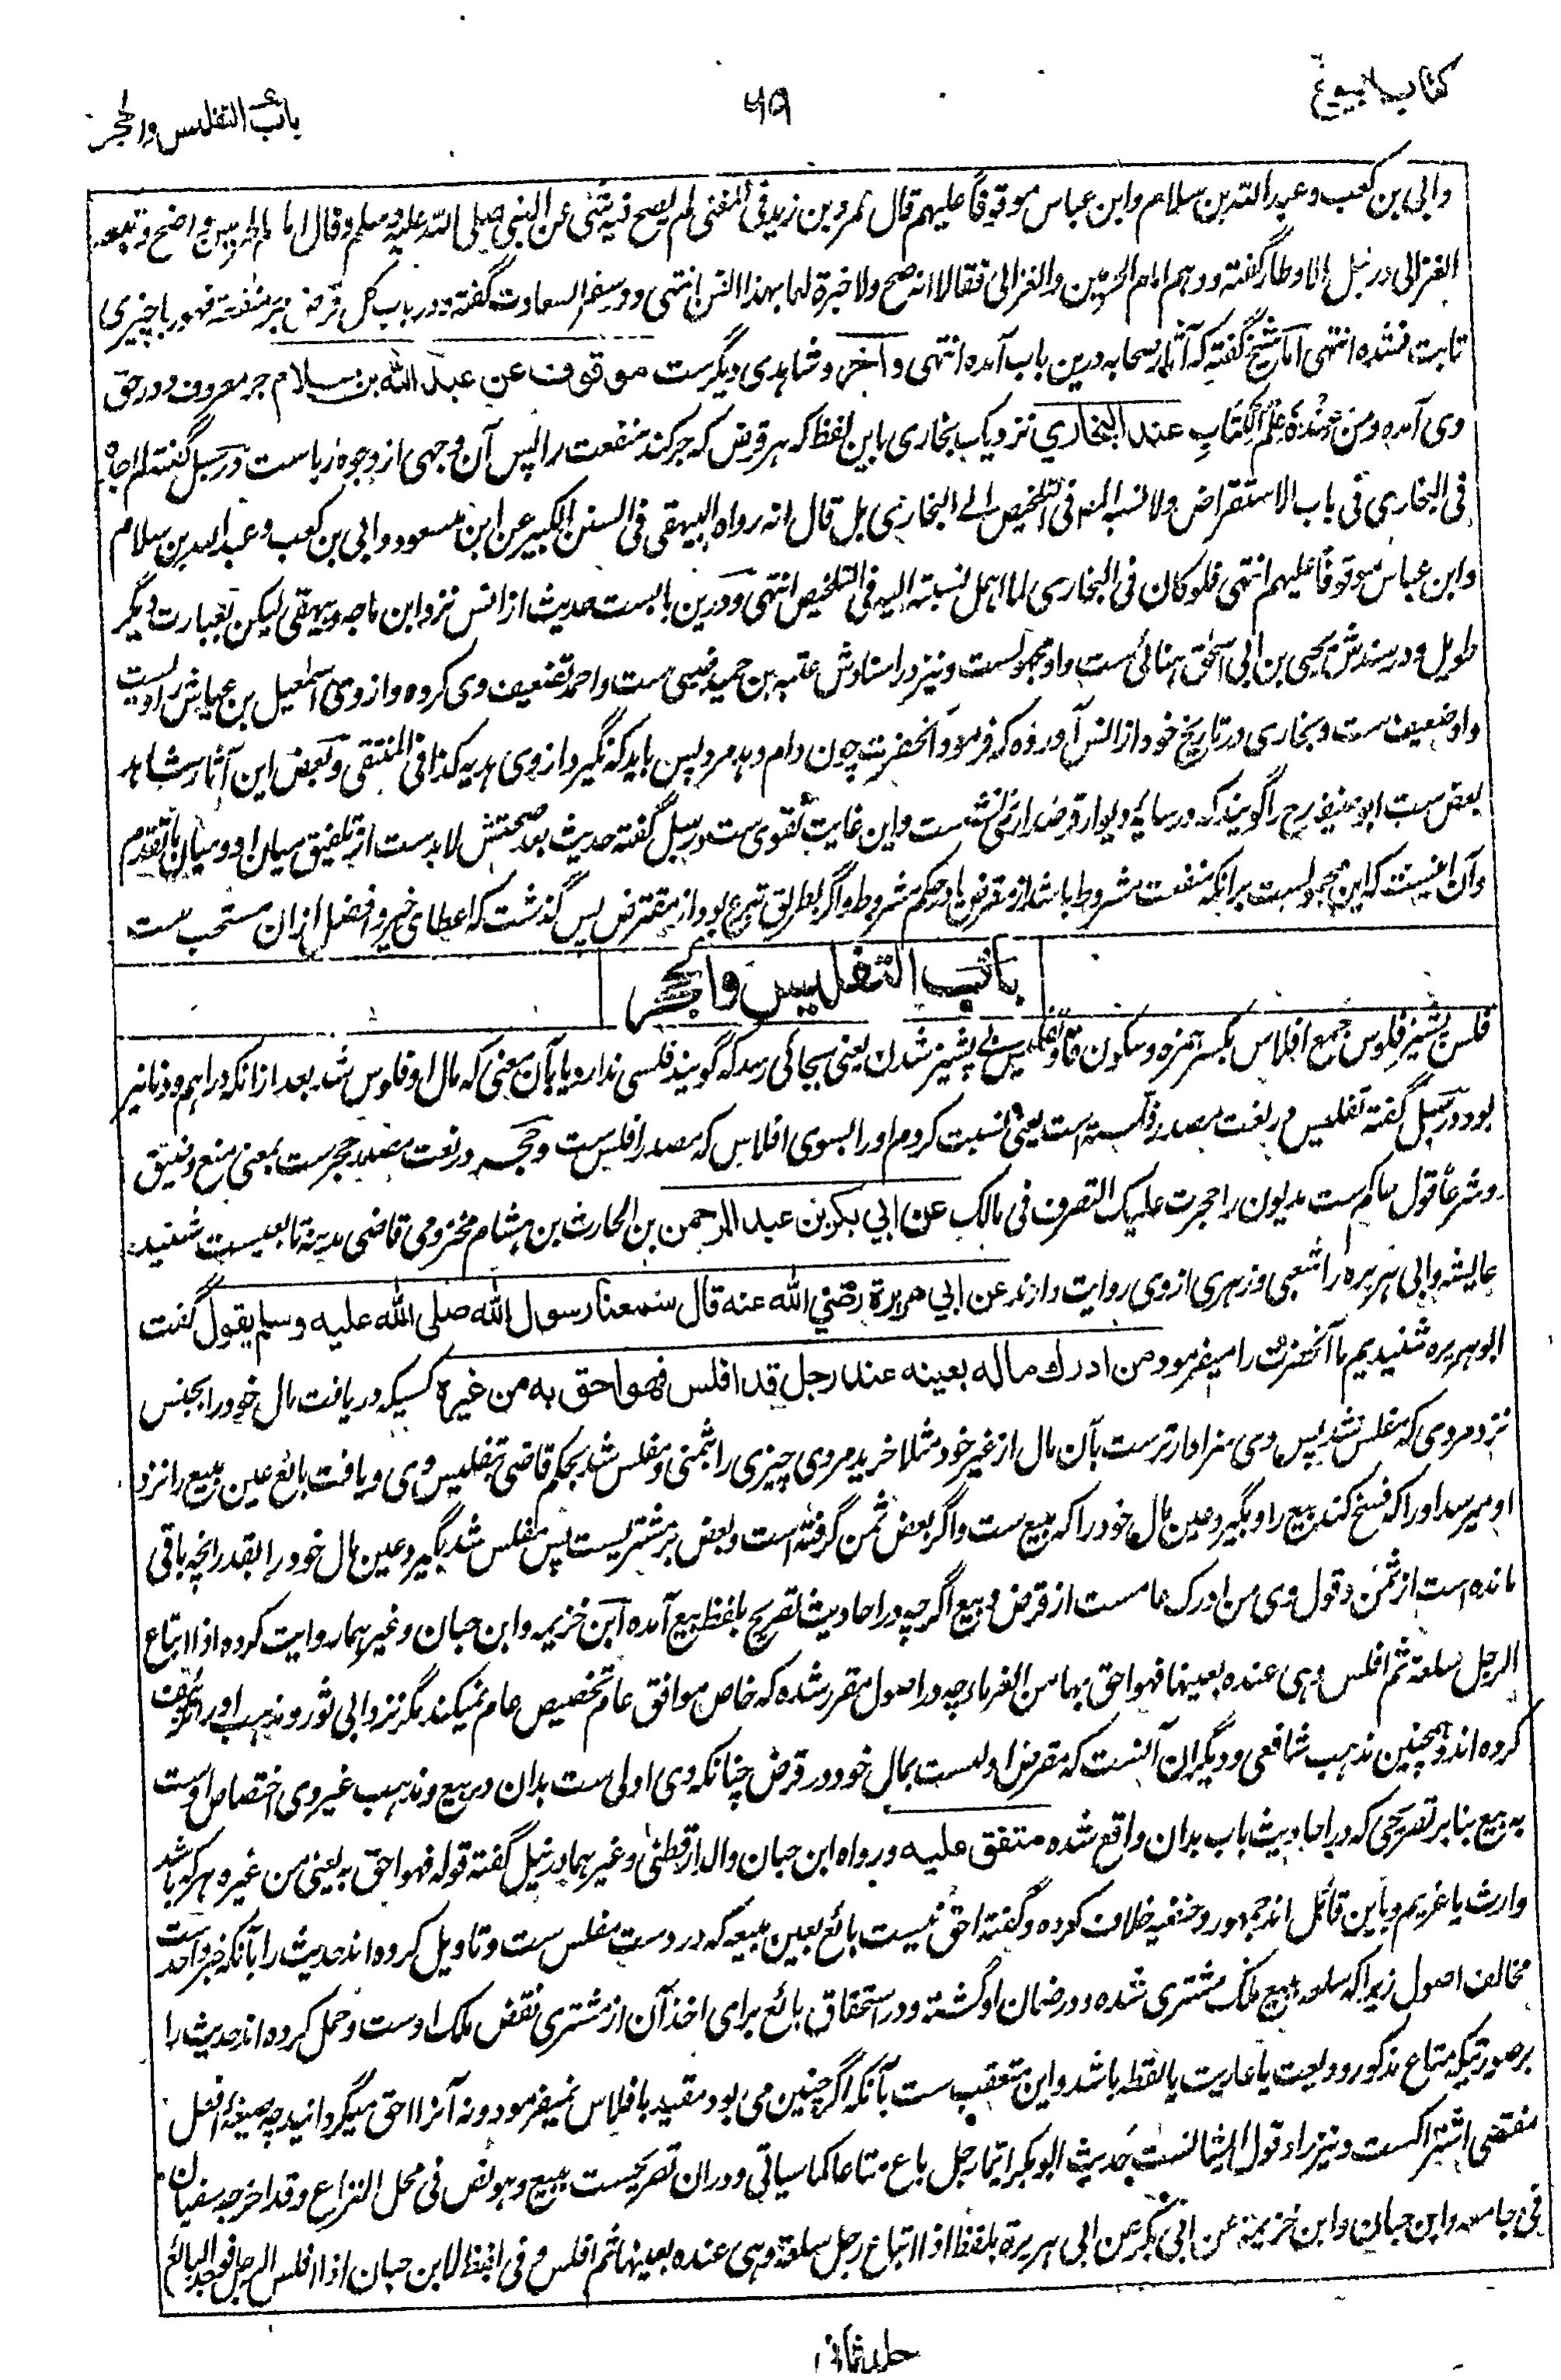 كتاب البيوع
۵۹
باب التفليس والحجر
وابی بن کعب وعبد الله بن سلام وابن عباس موقوفا علیهم قال عمر بن زید فی المغنی لم یصح فیه شئ عن النبی صلی الله علیه وسلم وقال امام الحرمین انه صح وتبعه
الغزالی در نیل الاوطار گفته ووهم امام الحرمین والغزالی فقالا انه صح ولا خبرة لهما بهذا الفن انتهی ودر سفر السعادت گفته ودر باب کل قرض جر منفعة فهو ربا چیزی
ثابت نشده انتهی اما شیخ گفته که آثار صحابه درین باب آمده انتهی وآخر وشاهدی دیگرست موقوف عن عبد الله بن سلام حبر معروف ودر حق
وی آمده ومن عنده علم الکتاب عند البخاري نزدیک بخاری باین لفظ که هر قرض که جر کند منفعت را پس آن وجهی از وجوه رباست در سبل گفته لم اجده
فی البخاری فی باب الاستقراض ولا نسبه المصنف فی التلخیص الی البخاری بل قال انه رواه البیهقی فی السنن الکبیر عن ابن مسعود وابی بن کعب وعبد الله بن سلام
وابن عباس موقوفا علیهم انتهی فلو کان فی البخاری لما اهمل نسبته الیه فی التلخیص انتهی ودرین بابست حدیث از انس نزد ابن ماجه وبیهقی لیکن بعبارت دیگر
طویل ودر سندش یحیی بن ابی اسحق هنائی ست واو مجهولست ونیز در اسنادش عتبه بن حمید ضبی ست واحمد تضعیف وی کرده واز وی اسمعیل بن عیاش راویست
واو ضعیف ست وبخاری در تاریخ خود از انس آورده که فرمود آنحضرت چون دام دهد مرد پس باید که نگیرد از وی هدیه کذا فی المنتقی وبعض این آثار شاهد
بعض ست ابو حنیفه رح را گویند که در سایهٔ دیوار قرضدار نمی نشست واین غایت تقوی ست در سبل گفته حدیث بعد صحتش لابدست از تلفیق میان او ومیان ما تقدم
وآن اینست که این محمولست بر آنکه منفعت مشروط باشد از مقرض یا در حکم مشروط واگر بطریق تبرع بود از مقترض پس گذشت که اعطای خیر وافضل ازان مستحب ست
باب التفليس والحجر
فلس پشیز فلوس جمع افلاس بکسر همزه وسکون فا وتفلیس بی پشیز شدن یعنی بجائی رسد که گویند فلسی ندارد یا بآن معنی که مال او فلوس شد بعد ازانکه دراهم ودنانیر
بود در سبل گفته تفلیس در لغت مصدر فلسته است یعنی نسبت کردم او را بسوی افلاس که مصدر افلس ست وحجر در لغت مصدر حجرست بمعنی منع وضیق
وشرعا قول حاکم ست مدیون را حجرت علیک التصرف فی مالک عن ابي بكر بن عبد الرحمن بن الحارث بن هشام مخزومی قاضی مدینه تابعیست شنید
عایشه وابی هریره را شعبی وزهری از وی روایت دارند عن ابي هريرة رضي الله عنه قال سمعنا رسول الله صلى الله عليه وسلم يقول گفت
ابو هریره شنیدیم ما آنحضرت را میفرمود من ادرك ماله بعينه عند رجل قد افلس فهو احق به من غيره کسیکه دریافت مال خود را بجنس
نزد مردی که مفلس شد پس وی سزاوارترست بآن مال از غیر خود مثلا خرید مردی چیزی را بثمنی ومفلس شد بحکم قاضی بتفلیس وی ویافت بائع عین مبیع را نزد
او میرسد او را که فسخ کند بیع را وبگیرد عین مال خود را که مبیع ست واگر بعض ثمن گرفته است وبعض بر مشتریست پس مفلس شد بگیرد عین مال خود را بقدر آنچه باقی
مانده است از ثمن وقول وی من ادرک عامست از قرض وبیع اگرچه در احادیث تصریح بلفظ بیع آمده ابن خزیمه وابن حبان وغیرهما روایت کرده اذا ابتاع
الرجل سلعة ثم افلس وهی عنده بعینها فهو احق بها من الغرماء چه در اصول مقرر شده که خاص موافق عام تخصیص عام نمیکند مگر نزد ابی ثور ومذهب او را تزییف
کرده اند وهمچنین مذهب شافعی ودیگران آنست که مقرض اولیست بمال خود در قرض چنانکه وی اولی ست بدان در بیع ومذهب غیر وی اختصاص اوست
به بیع بنابر تصریحی که در احادیث باب بدان واقع شده متفق عليه ورواه ابن حبان والدارقطنی وغیرهما در نیل گفته قوله فهو احق به یعنی من غیره هر که باشد
وارث یا غریم وباین قائل اند جمهور وحنفیه خلاف کرده وگفته احق نیست بائع بعین مبیعه که در دست مفلس ست وتاویل کرده اند حدیث را بآنکه خبر واحدست
مخالف اصول زیرا که سلعه مبیع ملک مشتری شده ودر ضمان او گشته ودر استحقاق بائع برای اخذ آن از مشتری نقض ملک اوست وحمل کرده اند حدیث را
بر صورتیکه متاع مذکور ودیعت یا عاریت یا لقطه باشد واین متعقب ست بآنکه اگر چنین می بود مقید بافلاس نمیفرمود ونه آنرا احق میگردانید چه صیغهٔ افعل
مقتضی اشتراکست ونیز راد قول ایشانست حدیث ابو بکر ایما رجل باع متاعا کما سیاتی ودران تصریحست ببیع وهو نص فی محل النزاع وقد اخرجه سفیان
فی جامعه وابن حبان وابن خزیمة عن ابی بکر عن ابی هریرة بلفظ اذا ابتاع رجل سلعة وهی عنده بعینها ثم افلس وفی لفظ لابن حبان اذا افلس الرجل فوجد البائع
جلد ثانی